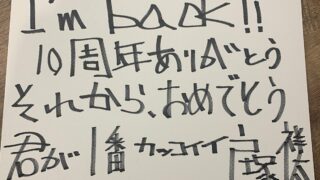 I'm back!!
10周年ありがとう
それから、おめでとう
君が1番カッコイイ